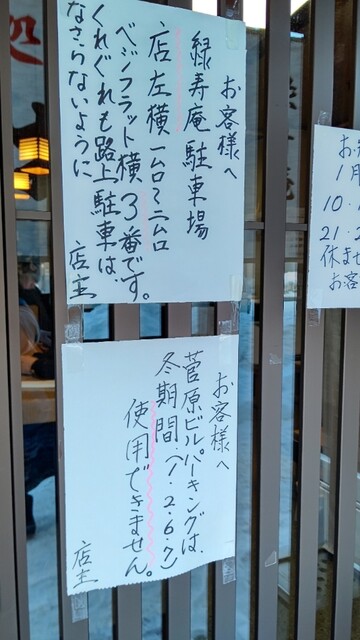 お客様へ
緑寿庵駐車場
店左横一ムロ〜ニムロ
ベジフラット横3番です。
くれぐれも路上駐車は
なさらないように
店主
お客様へ
菅原ビルパーキングは、
冬期間(1.2.6.7)
使用できません。
店主
1月
10.1
21.2
休ませ
お客
処